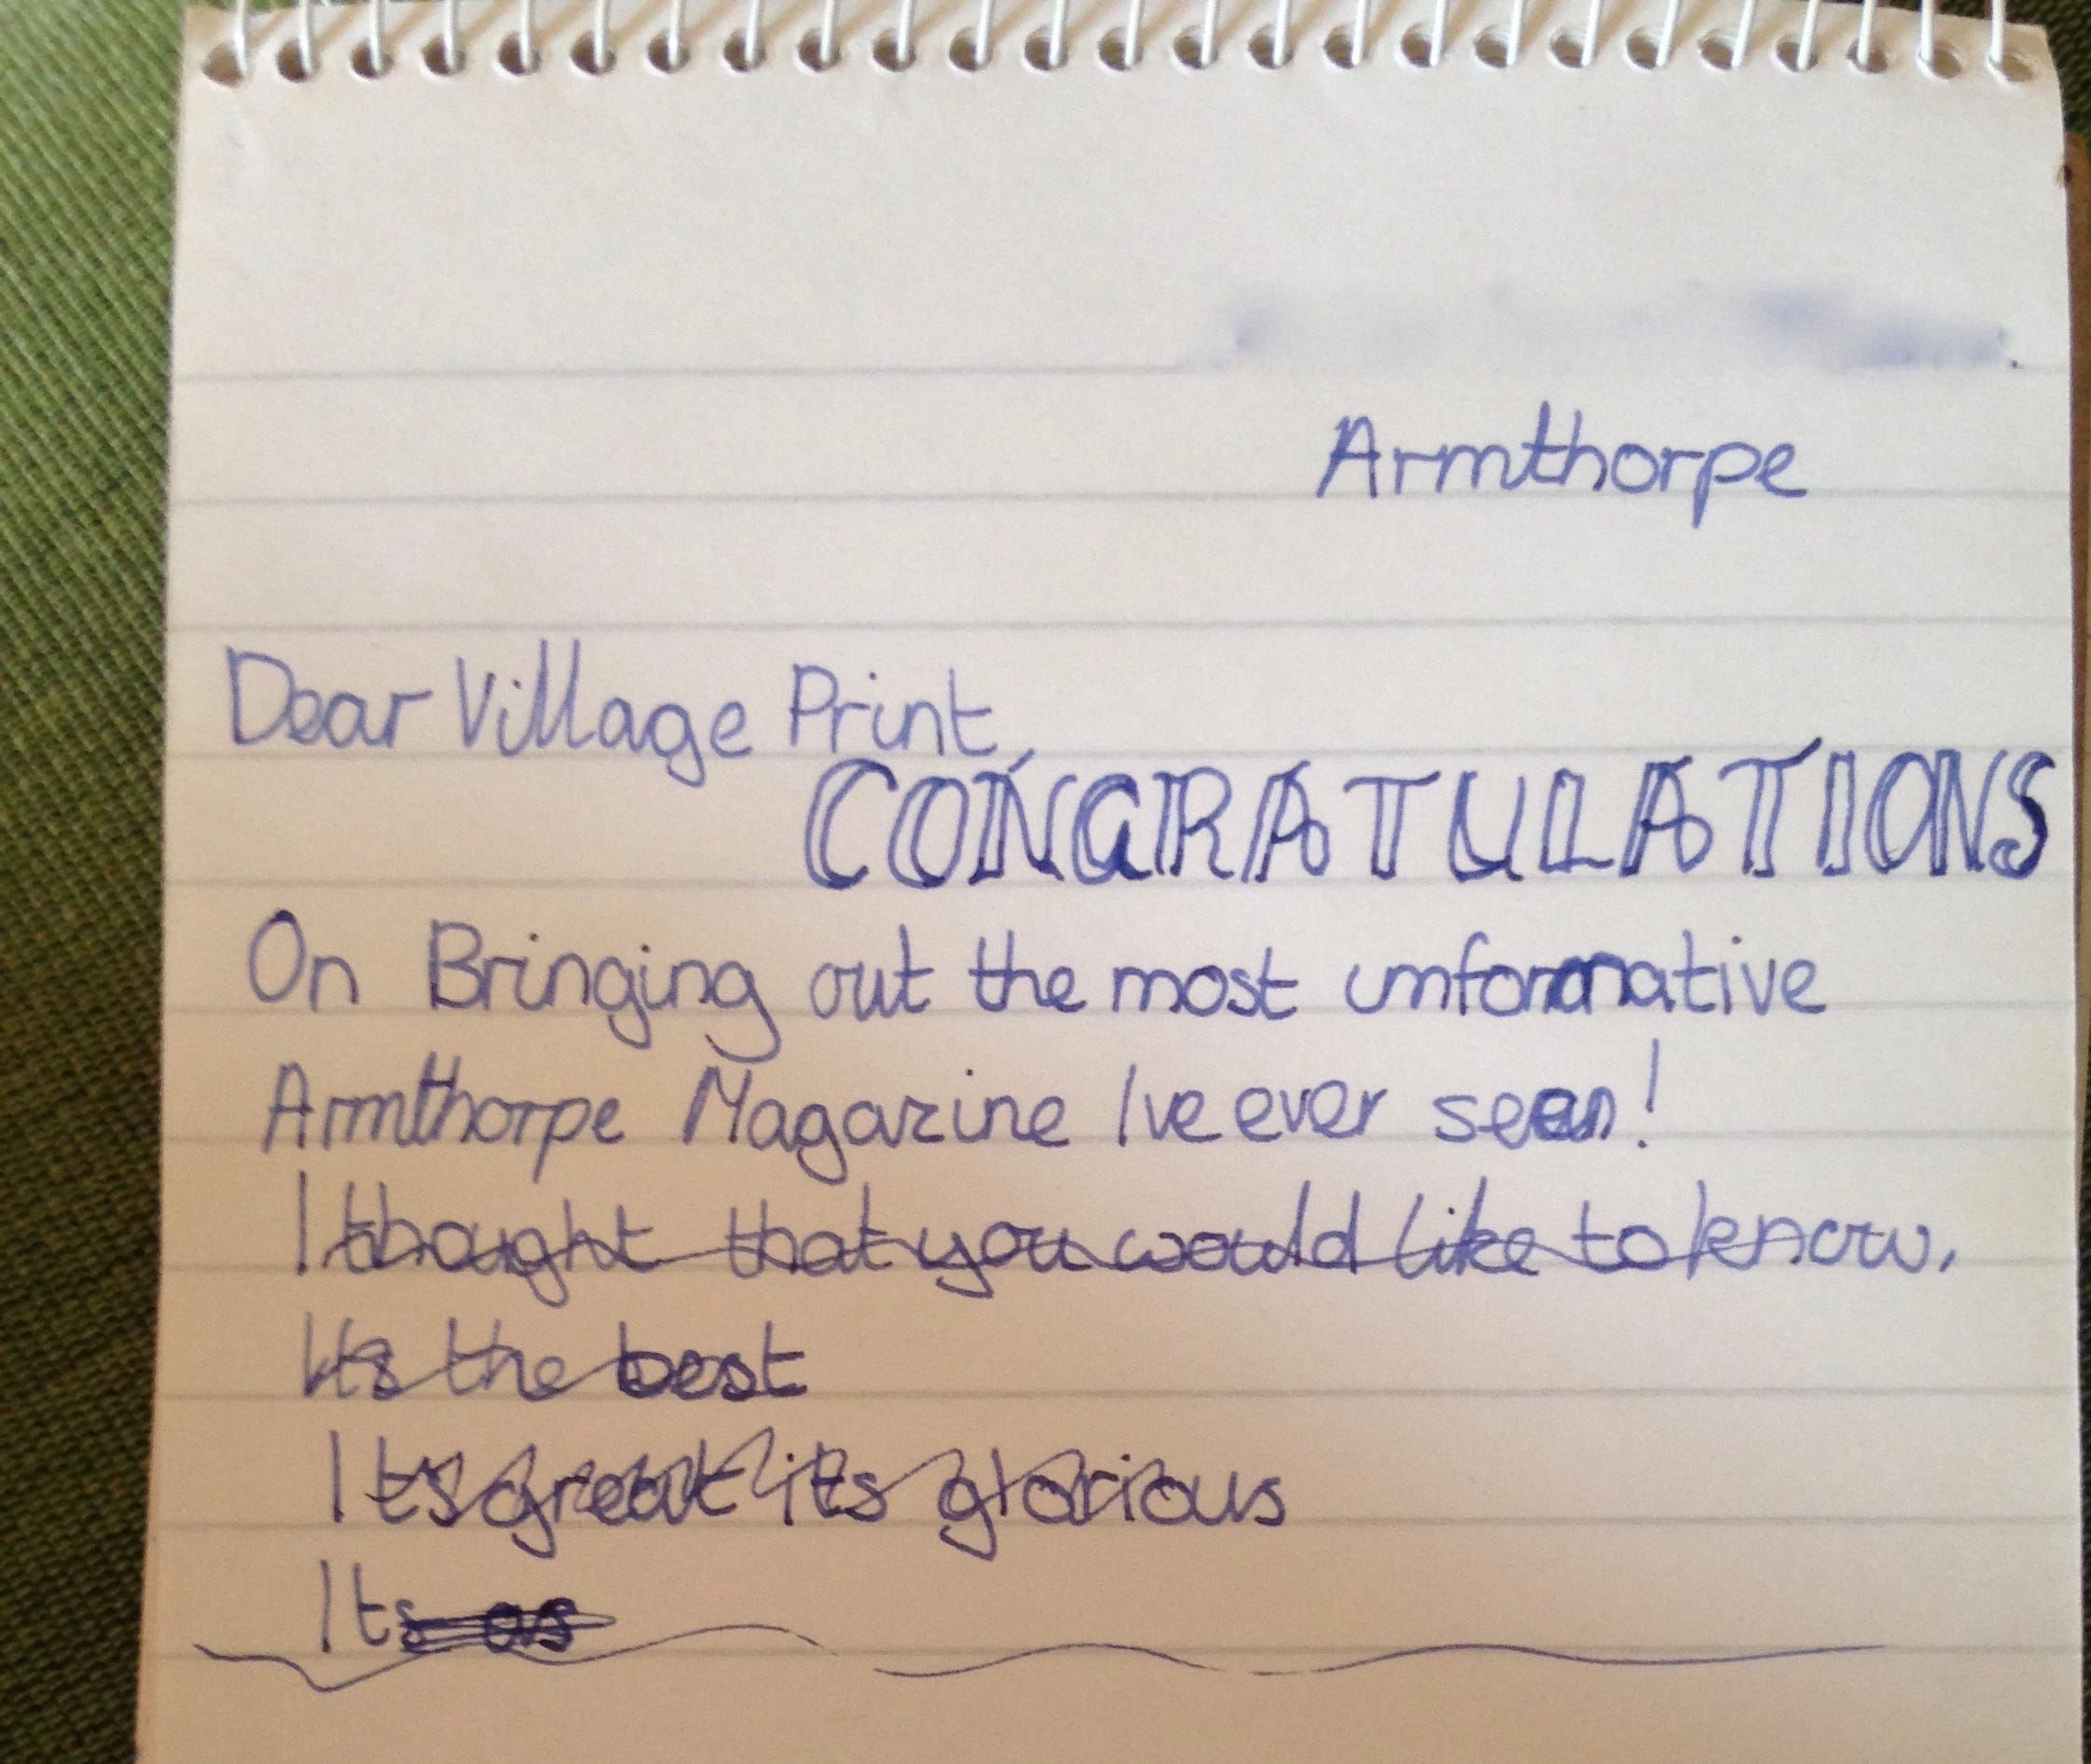 Armthorpe
Dear Village Print,
CONGRATULATIONS
On Bringing out the most imformative
Armthorpe Magazine Ive ever seen!
I thought that you would like to know.
Its the best
Its great its glorious
Its as